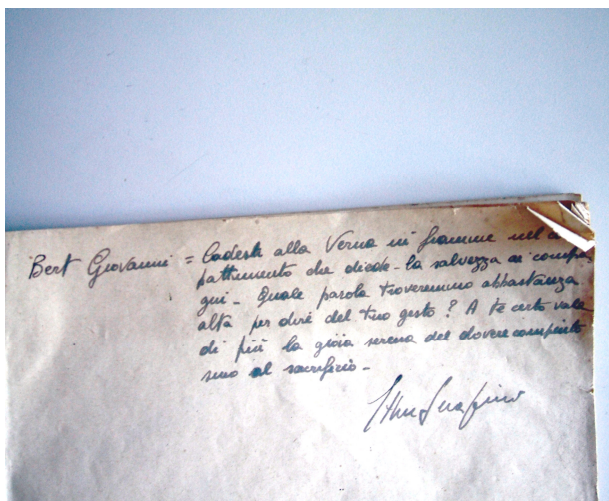 Bert Giovanni = Cadesti alla Verna in fiamme nel
pattimento che diede - la salvezza ai compa
gni - Quale parola troveremmo abbastanza
alta per dire del tuo gesto? A te certo vale
di più la gioia serena del dovere compiuto
sino al sacrificio -